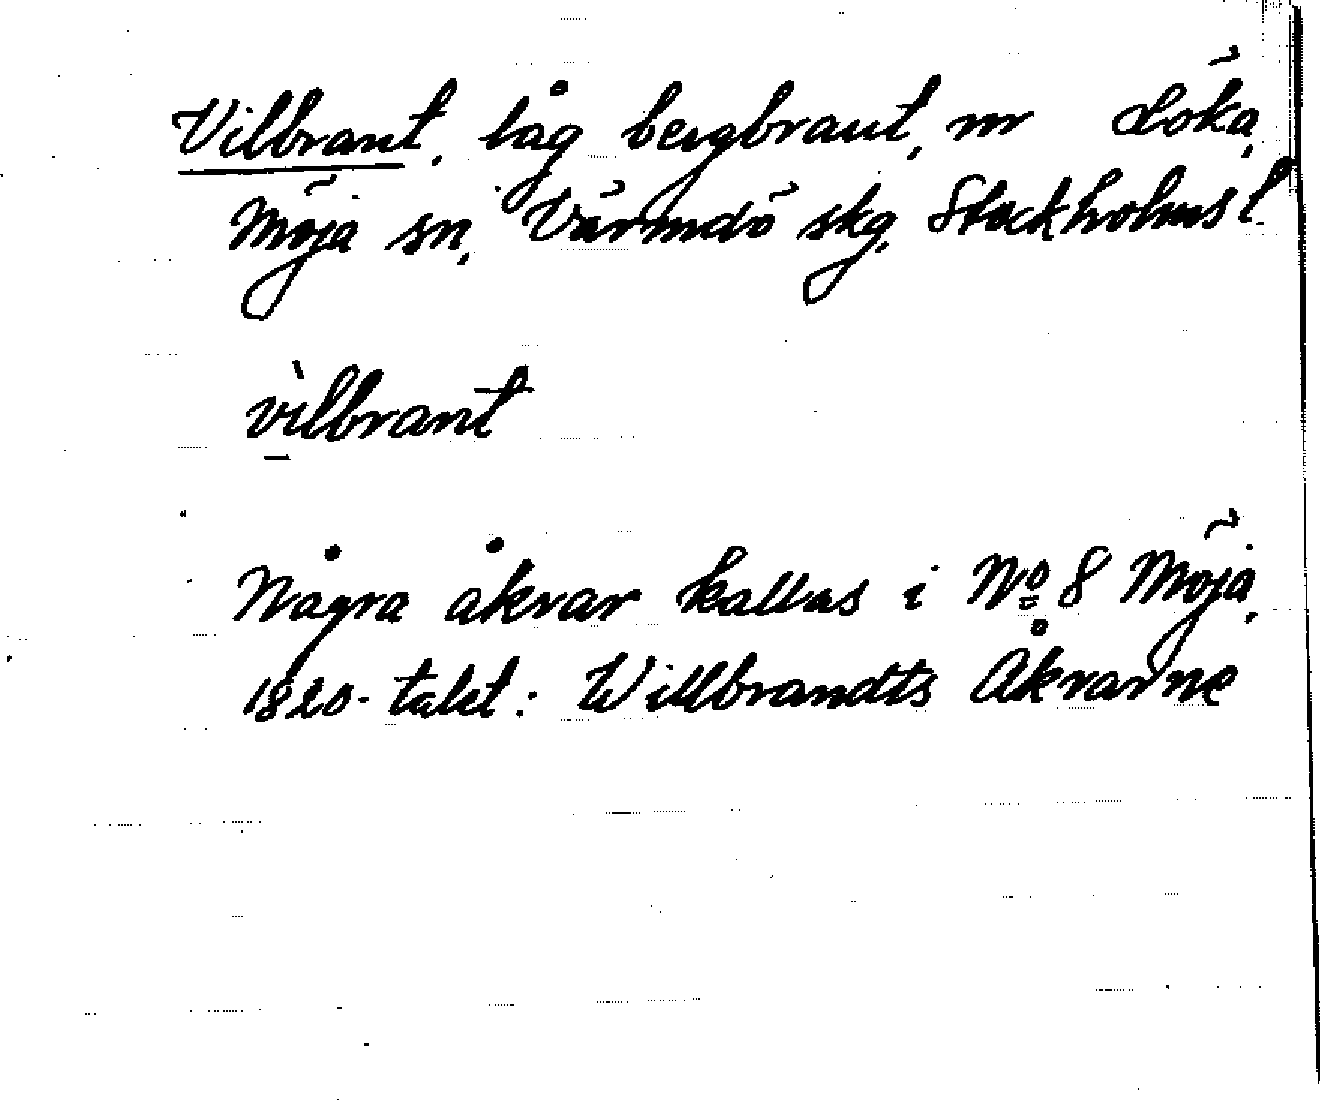 Vilbrant, låg bergbrant, nr Löka,
Möja sn, Värmdö skg, Stockholms l.
vìlbrant
Några åkrar kallas i No 8 Möja,
1820-talet: Willbrandts Åkrarne